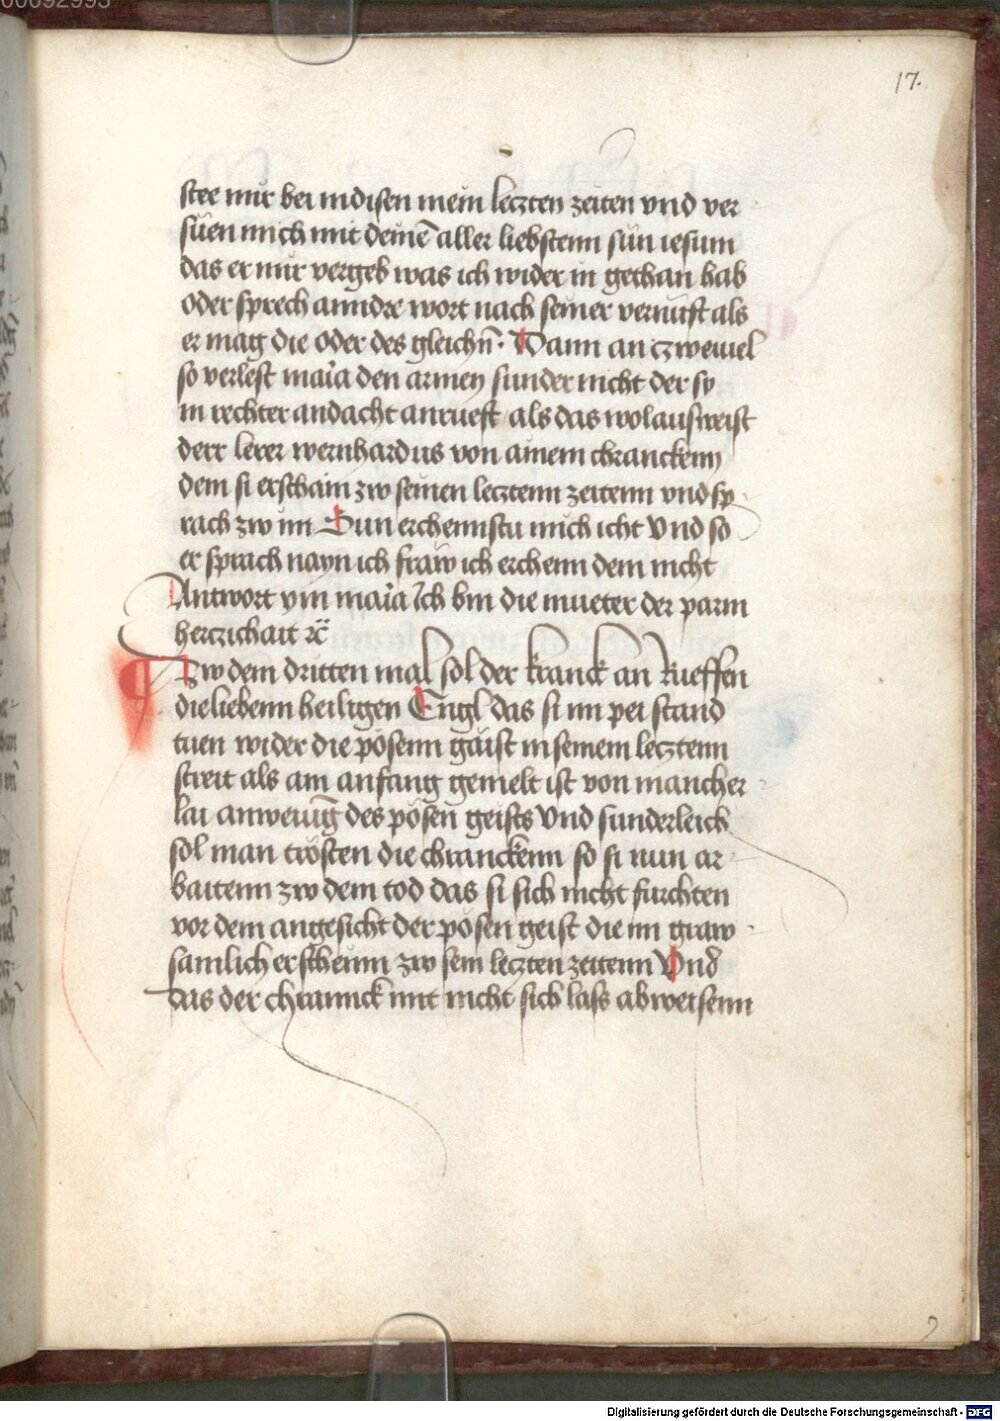 17.
stee mir bei in disen mein leczten zeiten vnd ver
süen mich mit deinē aller liebstenn sün iesum
das er mir vergeb was ich wider in gethan hab
oder sprech anndre wort nach seiner vernuft als
er mag die oder des gleichn̄. Wann an czweiuel
so verlest maria den armen sunder nicht der sy
in rechter andacht anrueft als das wol ausweist
derr lerer wernhardus von ainem chranckenn
dem si erschain zw seinen lecztenn zeitenn vnd sp
rach zw im Sun erchennstu mich icht Vnd so
er sprach nayn ich fraw ich erchenn dein nicht
Antwort vm maria Ich bin die mueter der parm
herczichait ꝛc̄
Zw dem dritten mal sol der kranck an Rueffen
die liebenn heiligen Engl das si im pei stand
tuen wider die pösenn gäist in seinem lecztenn
streit als am anfang gemelt ist von mancher
lai anweiūg des pösen geists Vnd sunderleich
sol man trösten die chranckenn so si nun ar
baitenn zw dem tod das si sich nicht furchten
vor dem angesicht der pösen geist die im graw
samlich erscheinn zw sein leczten zeitenn Vnd
das der chrannck mit nicht sich lass abweisenn
Digitalisierung gefördert durch die Deutsche Forschungsgemeinschaft - DFG